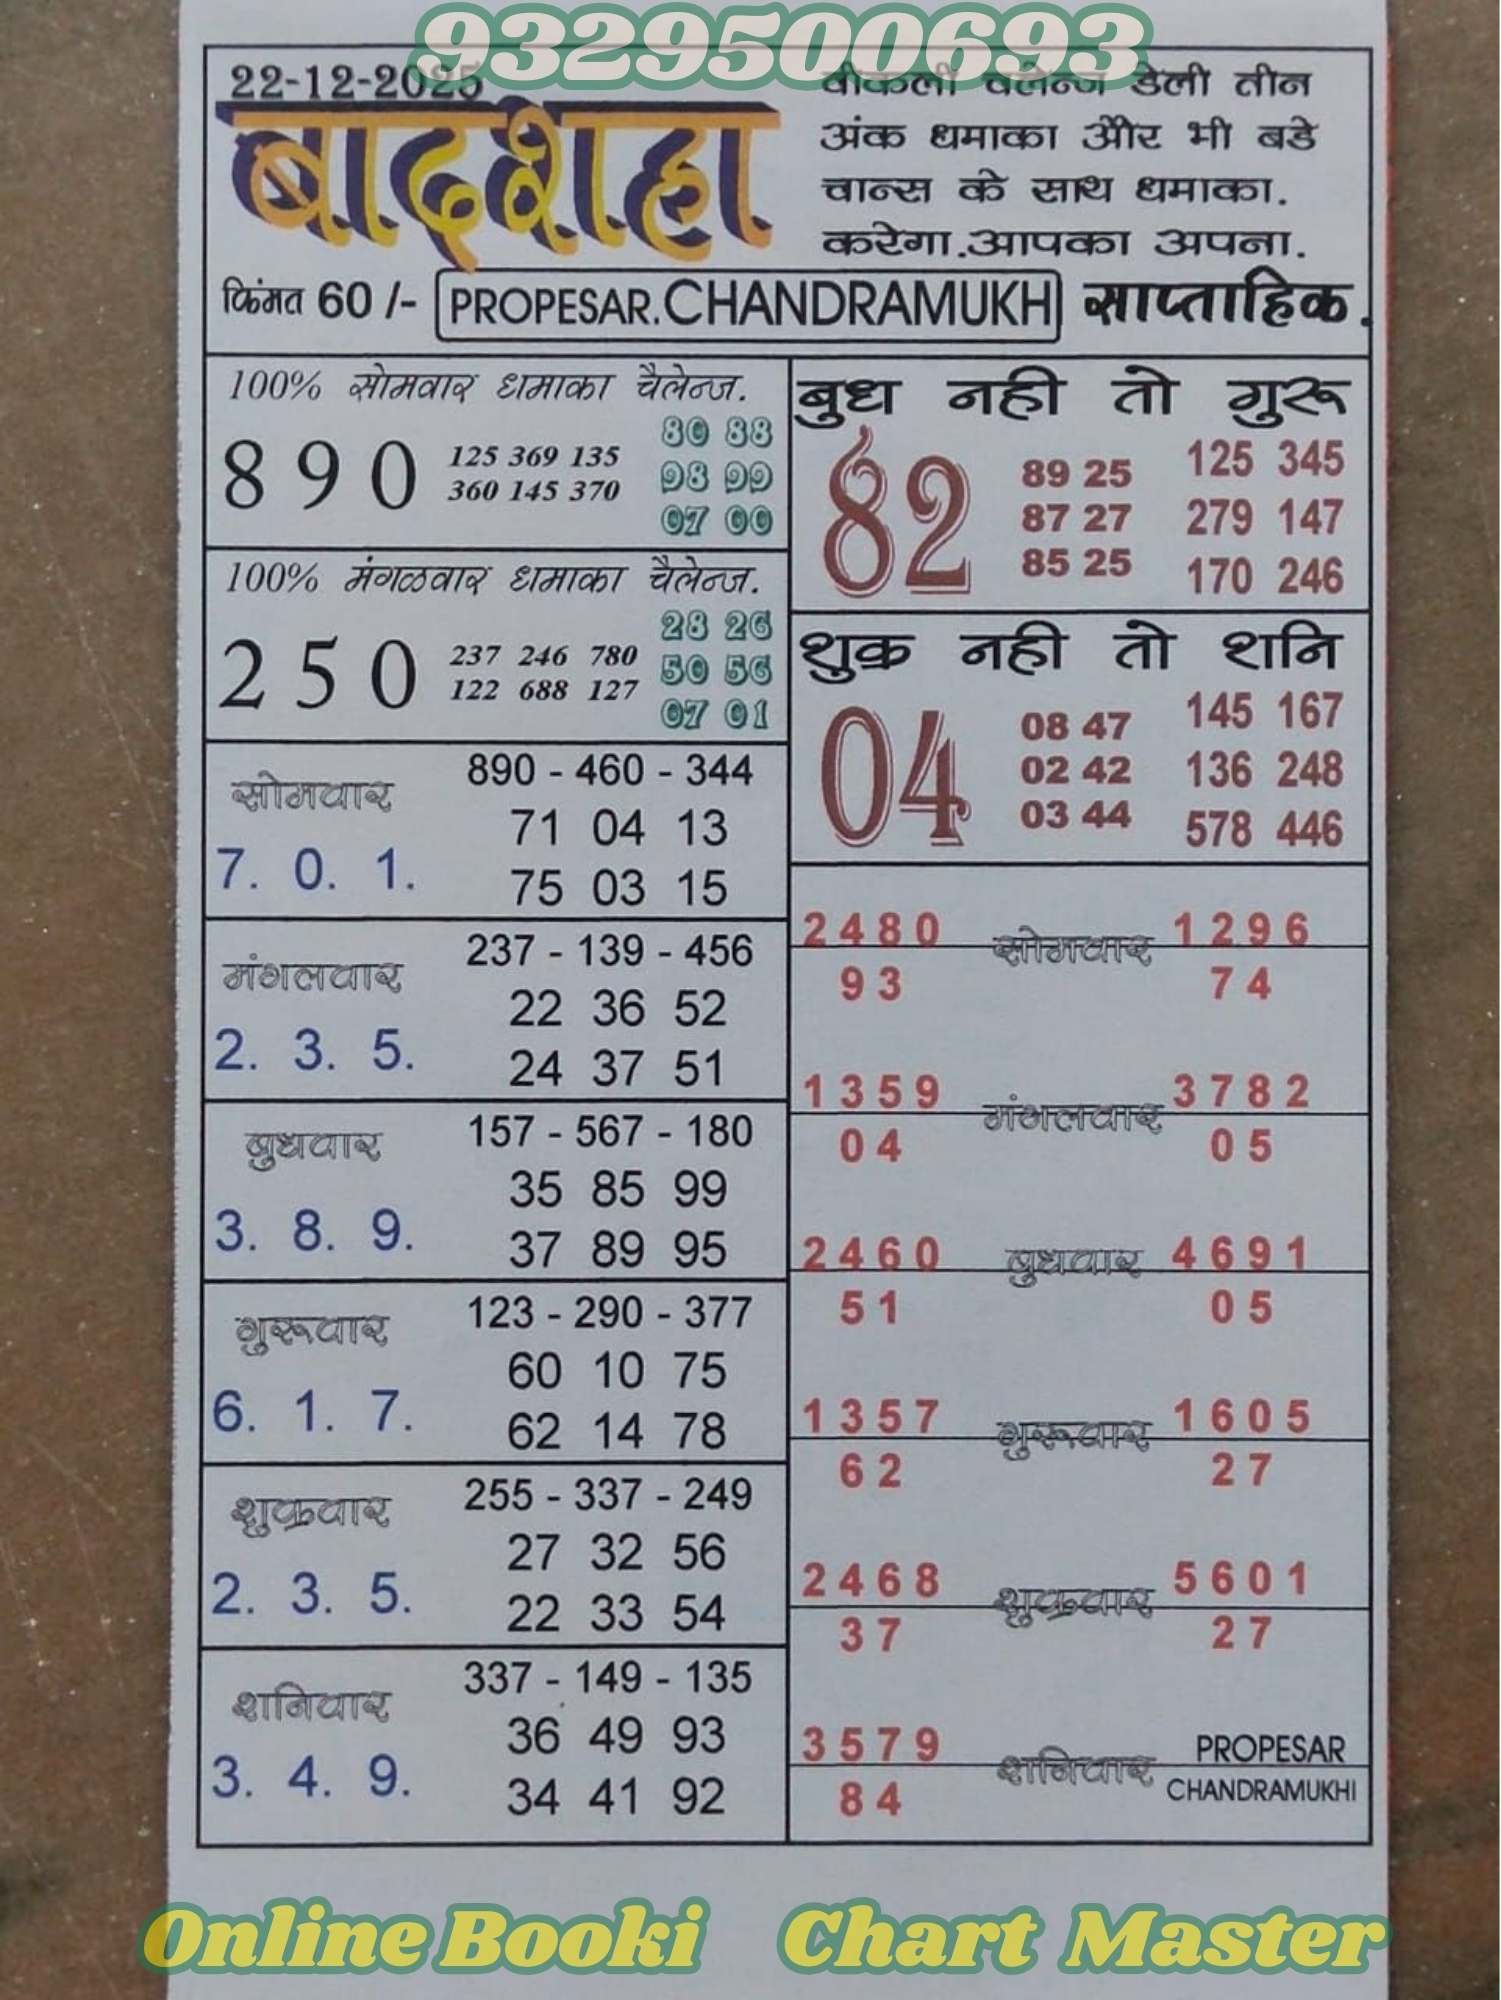 9329500693
22-12-2025
बादशहा
वीकली चलेन्ज डेली तीन
अंक धमाका और भी बडे
चान्स के साथ धमाका.
करेगा.आपका अपना.
किंमत 60 /-
PROPESAR.CHANDRAMUKHI
साप्ताहिक.
100% सोमवार धमाका चैलेन्ज.
8 9 0
125 369 135
360 145 370
80 88
98 99
07 00
100% मंगळवार धमाका चैलेन्ज.
2 5 0
237 246 780
122 688 127
28 26
50 56
07 01
सोमवार
7. 0. 1.
890 - 460 - 344
71 04 13
75 03 15
मंगलवार
2. 3. 5.
237 - 139 - 456
22 36 52
24 37 51
बुधवार
3. 8. 9.
157 - 567 - 180
35 85 99
37 89 95
गुरूवार
6. 1. 7.
123 - 290 - 377
60 10 75
62 14 78
शुक्रवार
2. 3. 5.
255 - 337 - 249
27 32 56
22 33 54
शनिवार
3. 4. 9.
337 - 149 - 135
36 49 93
34 41 92
बुध नही तो गुरू
82
89 25
87 27
85 25
125 345
279 147
170 246
शुक्र नही तो शनि
04
08 47
02 42
03 44
145 167
136 248
578 446
2480 सोमवार 1296
93 74
1359 मंगलवार 3782
04 05
2460 बुधवार 4691
51 05
1357 गुरूवार 1605
62 27
2468 शुक्रवार 5601
37 27
3579 शनिवार PROPESAR
84 CHANDRAMUKHI
Online Booki Chart Master